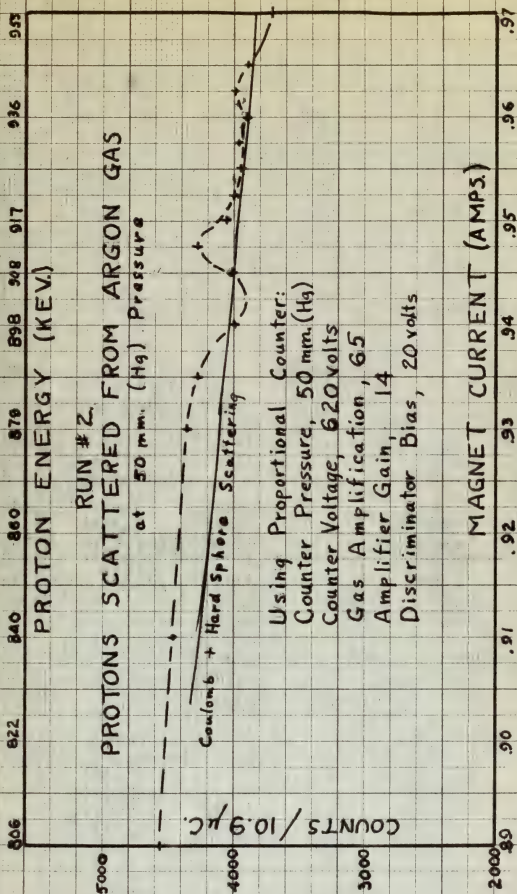 806 822 840 860 879 898 908 917 936 955
PROTON ENERGY (KEV.)
RUN #2
PROTONS SCATTERED FROM ARGON GAS
at 50 mm. (Hg) Pressure
5000
4000
3000
2000
COUNTS / 10.9 μC.
Coulomb + Hard Sphere Scattering
Using Proportional Counter:
Counter Pressure, 50 mm. (Hg)
Counter Voltage, 620 volts
Gas Amplification, 65
Amplifier Gain, 14
Discriminator Bias, 20 volts
MAGNET CURRENT (AMPS.)
.89 .90 .91 .92 .93 .94 .95 .96 .97